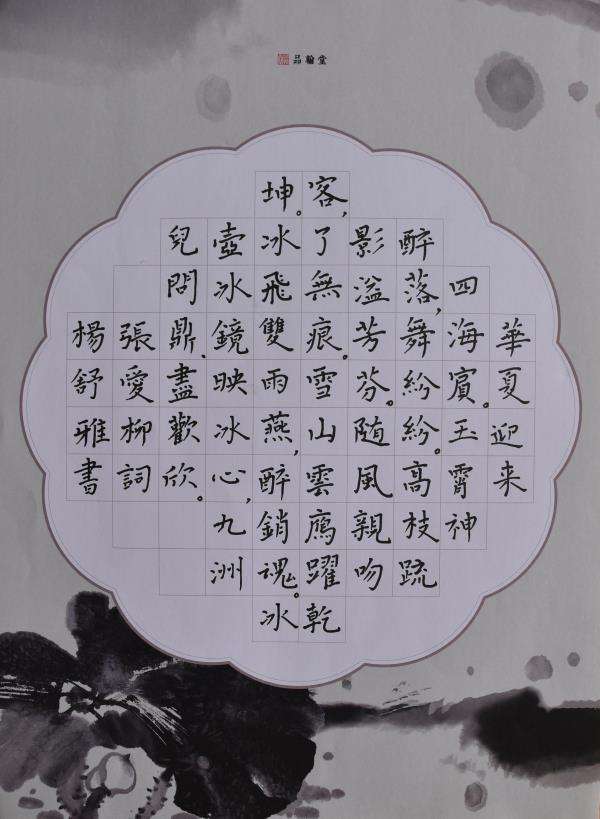 品翰堂
華夏迎来
四海賓。玉霄神
醉落,舞紛紛。高枝疏
影溢芳芬。随風親吻
客,了無痕。雪山雲鷹躍乾
坤。冰飛雙雨燕,醉銷魂。冰
壺冰鏡映冰心,九洲
兒問鼎.盡歡欣。
張愛柳詞
楊舒雅書